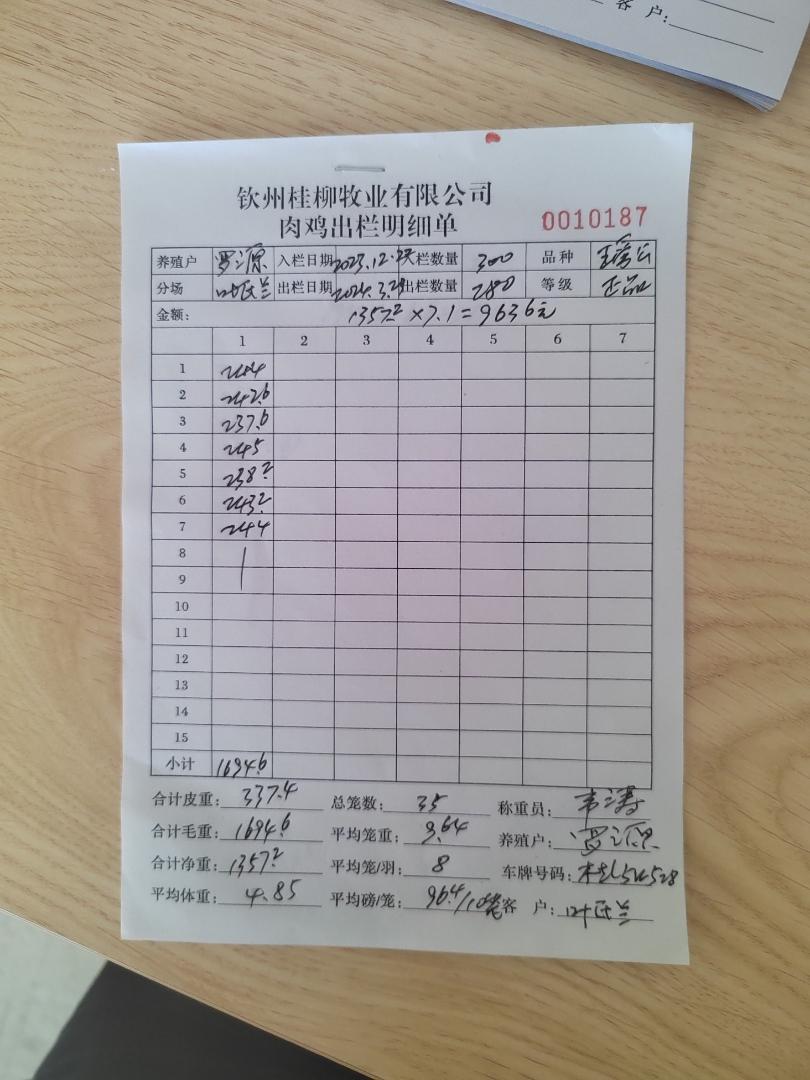 客 户:
钦州桂柳牧业有限公司
肉鸡出栏明细单
0010187
养殖户 罗源 入栏日期 2023.12.27 入栏数量 300 品种
分场 叶氏兰 出栏日期 2024.3.29 出栏数量 280 等级 正品
金额: 1357.2 × 7.1 = 9636元
1 2 3 4 5 6 7
1 244
2 242.6
3 237.6
4 245
5 238.2
6 243.2
7 244
8
9
10
11
12
13
14
15
小计 1694.6
合计皮重: 337.4 总笼数: 35 称重员: 韦涛
合计毛重: 1694.6 平均笼重: 9.64 养殖户: 罗源
合计净重: 1357.2 平均笼/羽: 8 车牌号码:
平均体重: 4.85 平均磅/笼: 96.4/10笼 客 户: 叶氏兰